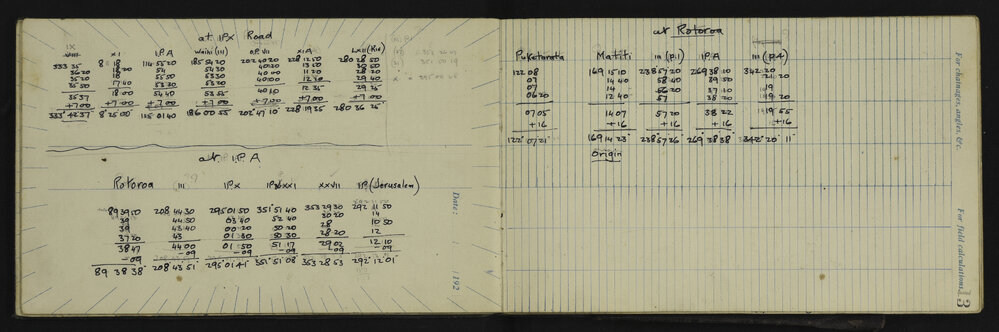 at IPX Road
IX XI IPA Waihi (III) OP VII XIA LXII (Rid)
333 35 8 18 114 55 20 185 54 20 202 40 20 228 12 50 280 28 50
36 20 18 20 54 54 30 40 30 13 10 28 50
35 20 18 55 50 53 30 40 00 11 20 28 20
35 50 17 40 53 20 53 20 40 00 12 10 29 40
35 37 18 00 54 40 53 55 40 10 12 35 29 25
+7 00 +7 00 +7 00 +7 00 +7 00 +7 00 +7 00
333° 42' 37" 8° 25' 00" 115 01 40 186 00 55 202° 47' 10" 228° 19' 35" 280 36 25
at I.P. A
Rotoroa III IPX XXI XXVII IP (Jerusalem)
89 39 50 208 44 30 295 01 50 351 51 40 353 29 30 292 11 50
39 44 50 03 40 52 40 30 20 14
39 43 40 00 20 50 20 28 10 50
37 20 43 01 30 50 30 28 20 12
38 47 44 00 01 50 51 17 29 02 12 10
-09 -09 -09 -09 -09 -09
89° 38' 38" 208° 43' 51" 295° 01' 41" 351° 51' 08" 353 28 53 292° 12' 01"
Date: 192
at Rotoroa
Puketarata Matiti III (p.1) IPA III (p.4)
122 08 169 15 10 238 57 20 269 38 10 342 20
07 14 40 58 40 39 50 21 20
07 14 56 20 37 10 19
06 20 12 40 57 38 20 19 20
07 05 14 07 57 20 38 22 19 55
+16 +16 +16 +16 +16
122° 07' 21" 169 14 23 238 57 36 269° 38' 38" 342° 20' 11"
Origin
For chainages, angles, &c.
For field calculations.
3